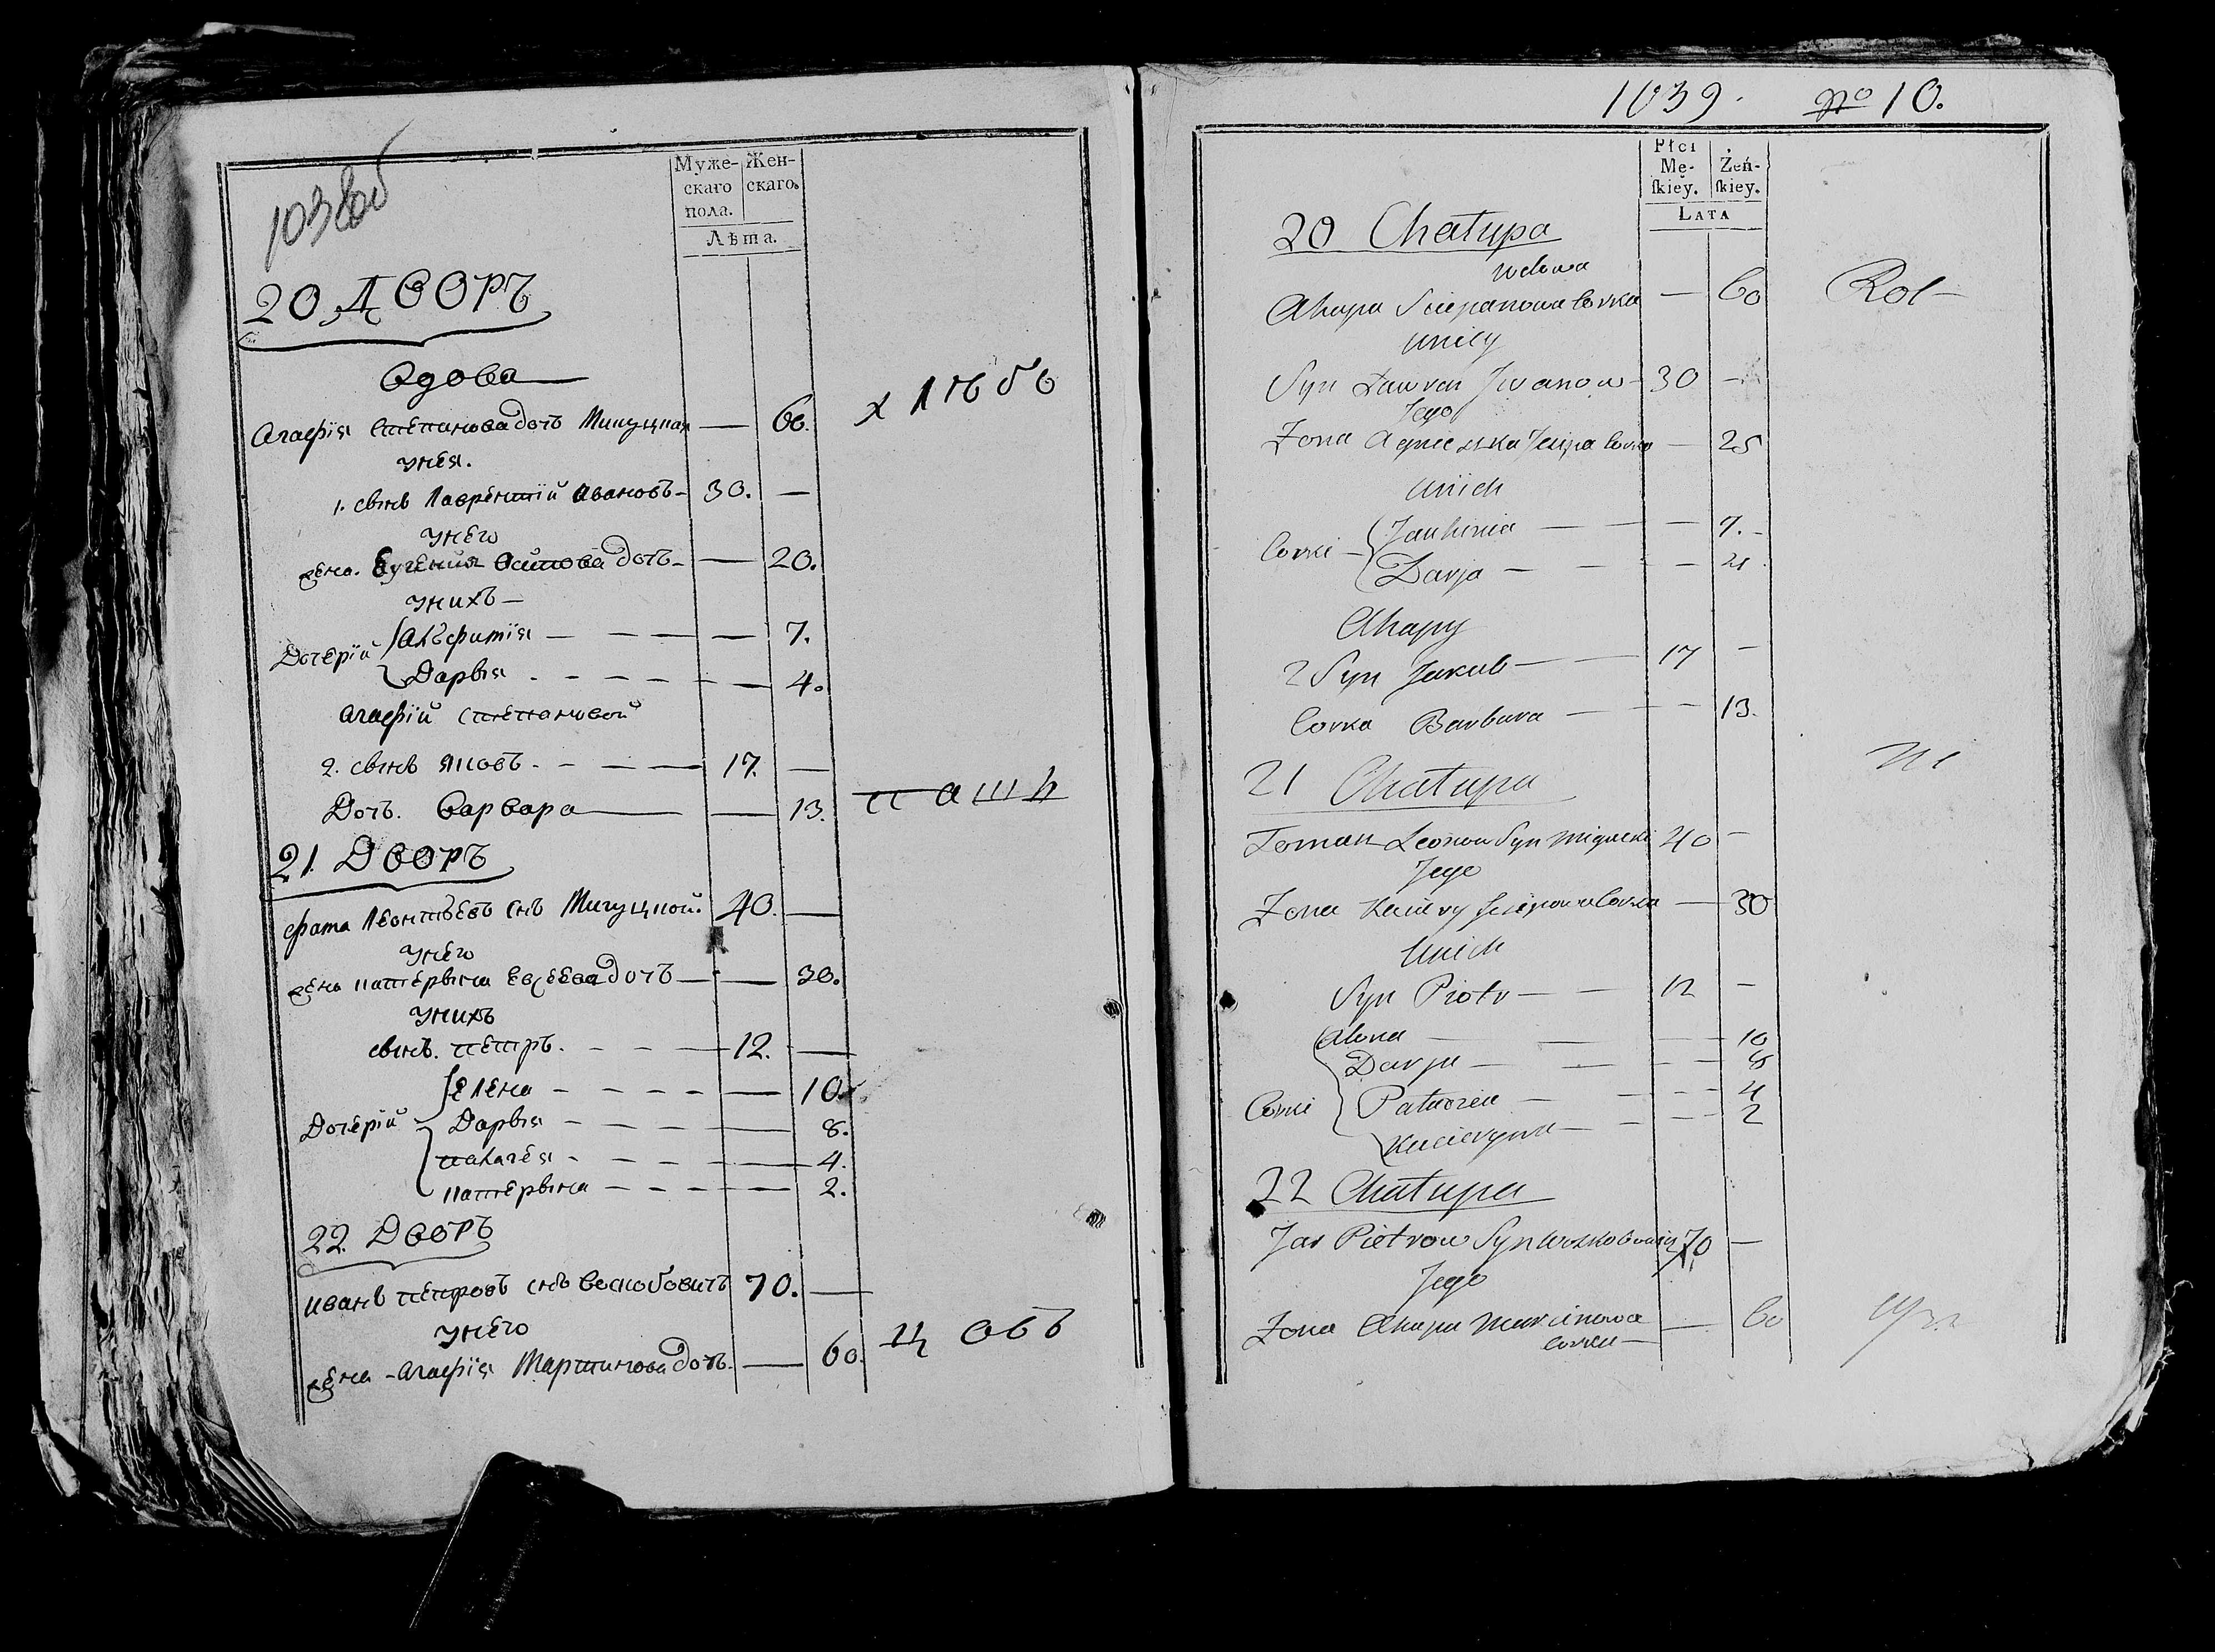 1038 об
Муже-
скаго
пола.
Жен-
скаго.
Лѣта.
20 Дворъ
Вдова
Агафія Степанова дочъ Мигуцкая — 60.
хлѣбо
унея.
1. сынъ Лаврентій Ивановъ — 30. —
унего
жена. Евгения Осипова дочъ — — 20.
унихъ —
Дочерій
Акъсинія — — — — 7.
Дарья - - - - — 4.
Агафій Степановой
2. сынъ Яковъ. - — — 17. —
Дочъ. Варвара — — 13.
паш
21. Дворъ
Фама Леонтьевъ снъ Мигуцкой. 40. —
унего
жена Катерына Евсеева дочъ — — 30.
унихъ
сынъ. Петръ. - - - — 12. —
Дочерій
Елена - - - - — 10.
Дарья - - - - — 8.
Палагея - - - - — 4.
Катерына - - - - — 2.
22. Дворъ
Иванъ Петровъ снъ Воскобовичъ 70. —
унего
жена - Агафія Мартинова дочъ. — 60.
ц овъ
1039. No 10.
Płci
Mę-
ſkiey.
Żeń-
ſkiey.
Lata
20 Chałupa
Wdowa
Ahapa Sciepanowa Corka — 60
Rol —
Uniey
Syn Lawren Jwanow 30 —
Jego
Żona Agnieszka Jesipa Corka — 25
Unich
Corki
Jauhinia — — — 7. -
Darja — - - — 4
Ahapy
2 Syn Jakub — — 17 —
Corka Barbara — - — 13.
21 Chałupa
Toman Leonow Syn Migucki 40 —
Jego
Żona Kaciery Corka — 30
Unich
Syn Piotr — — 12 —
Corki
Alona — — — 10
Darja — — — 8
Palucia — — — 4
Kacieryna — — — 2
22 Chałupa
Jan Pietrow Syn Woskobowicz 70 —
Jego
Żona Ahapa Marcinowa
Corka — — 60